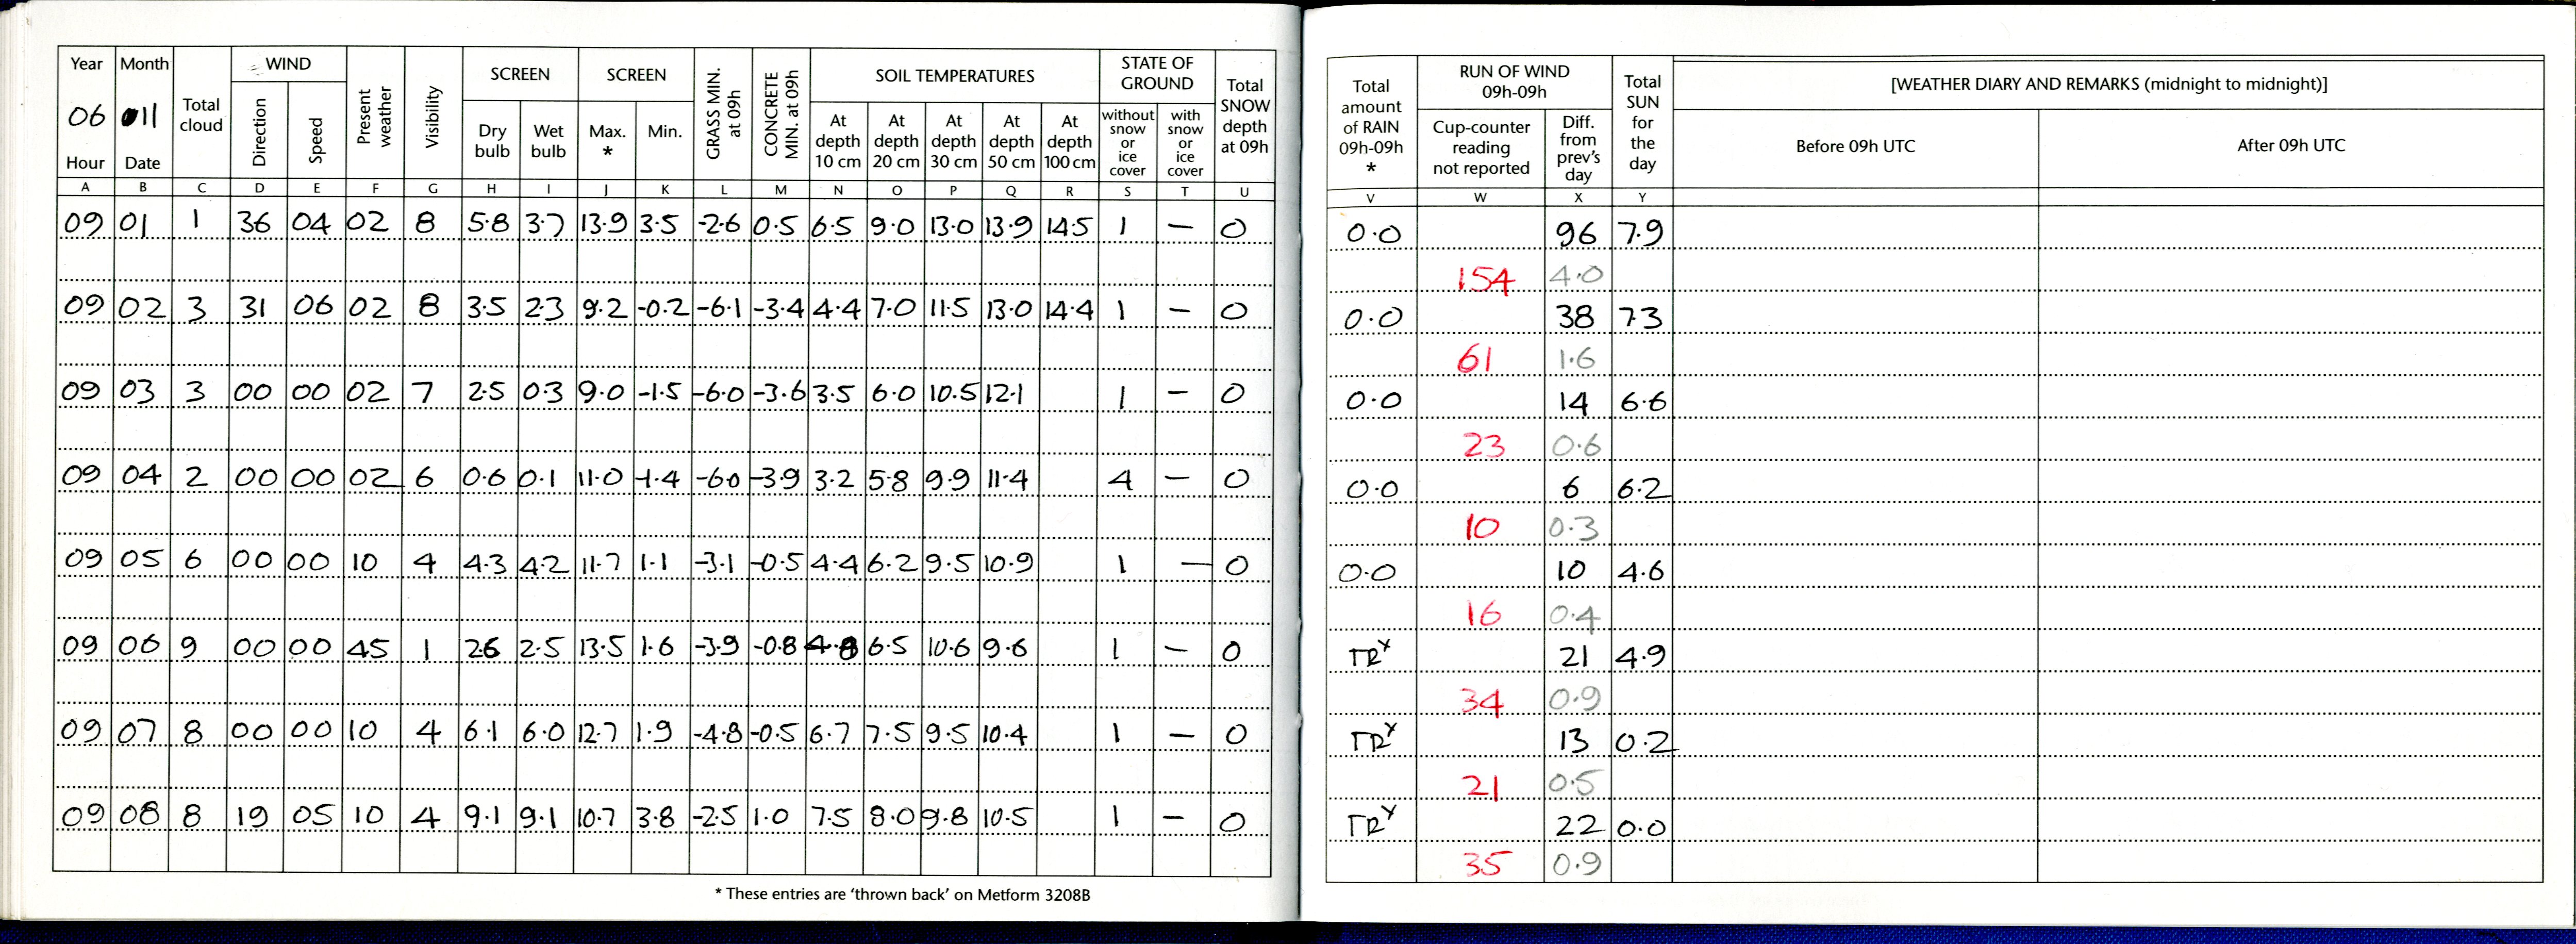 Year Month Total cloud WIND Present weather Visibility SCREEN SCREEN GRASS MIN. at 09h CONCRETE MIN. at 09h SOIL TEMPERATURES STATE OF GROUND Total SNOW depth at 09h
06 11 Direction Speed Dry bulb Wet bulb Max. * Min. At depth 10 cm At depth 20 cm At depth 30 cm At depth 50 cm At depth 100 cm without snow or ice cover with snow or ice cover
Hour Date
A B C D E F G H I J K L M N O P Q R S T U
09 01 1 36 04 02 8 5.8 3.7 13.9 3.5 -2.6 0.5 6.5 9.0 13.0 13.9 14.5 1 — 0
09 02 3 31 06 02 8 3.5 2.3 9.2 -0.2 -6.1 -3.4 4.4 7.0 11.5 13.0 14.4 1 — 0
09 03 3 00 00 02 7 2.5 0.3 9.0 -1.5 -6.0 -3.6 3.5 6.0 10.5 12.1 1 — 0
09 04 2 00 00 02 6 0.6 0.1 11.0 -1.4 -6.0 -3.9 3.2 5.8 9.9 11.4 4 — 0
09 05 6 00 00 10 4 4.3 4.2 11.7 1.1 -3.1 -0.5 4.4 6.2 9.5 10.9 1 — 0
09 06 9 00 00 45 1 2.6 2.5 13.5 1.6 -3.9 -0.8 4.8 6.5 10.6 9.6 1 — 0
09 07 8 00 00 10 4 6.1 6.0 12.7 1.9 -4.8 -0.5 6.7 7.5 9.5 10.4 1 — 0
09 08 8 19 05 10 4 9.1 9.1 10.7 3.8 -2.5 1.0 7.5 8.0 9.8 10.5 1 — 0
* These entries are ‘thrown back’ on Metform 3208B
Total amount of RAIN 09h-09h * RUN OF WIND 09h-09h Total SUN for the day [WEATHER DIARY AND REMARKS (midnight to midnight)]
Cup-counter reading not reported Diff. from prev's day Before 09h UTC After 09h UTC
V W X Y
0.0 96 7.9
154 4.0
0.0 38 7.3
61 1.6
0.0 14 6.6
23 0.6
0.0 6 6.2
10 0.3
0.0 10 4.6
16 0.4
TRx 21 4.9
34 0.9
TRx 13 0.2
21 0.5
TRx 22 0.0
35 0.9